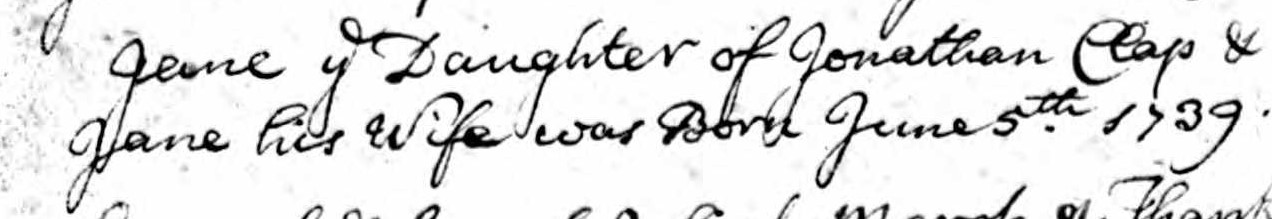 Jane yͤ Daughter of Jonathan Clap &
Jane his Wife was Born June 5th. 1739.